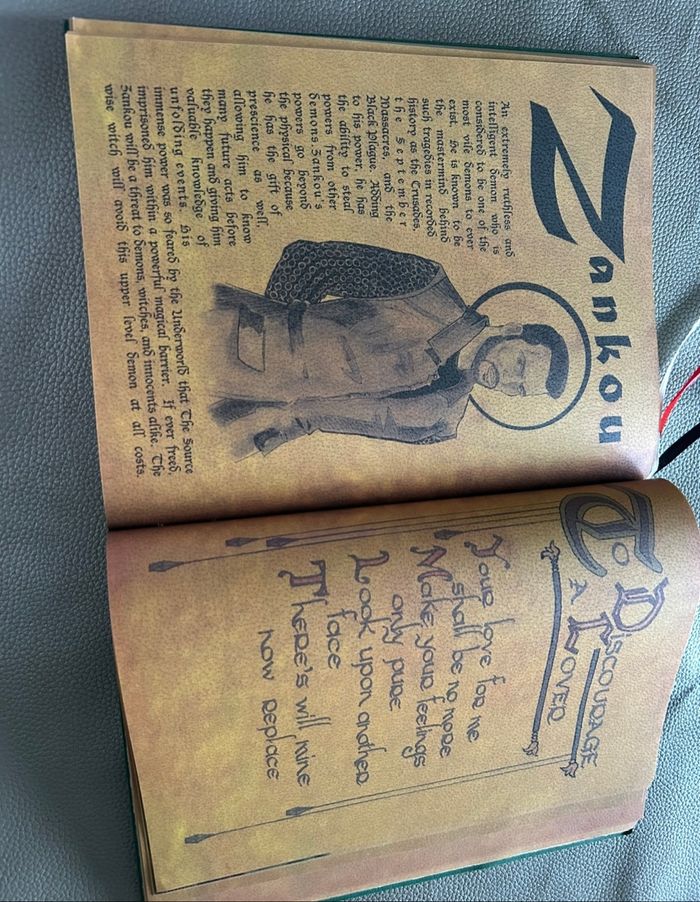 Zankou
An extremely ruthless and
intelligent demon who is
considered to be one of the
most vile demons to ever
exist. He is known to be
the mastermind behind
such tragedies in recorded
history as the Crusades,
the September
Massacres, and the
Black Plague. Adding
to his power, he has
the ability to steal
powers from other
demons. Zankou's
powers go beyond
the physical because
he has the gift of
prescience as well,
allowing him to know
many future acts before
they happen and giving him
valuable knowledge of
unfolding events. His
immense power was so feared by the Underworld that The Source
imprisoned him within a powerful magical barrier. If ever freed,
Zankou will be a threat to demons, witches, and innocents alike. The
wise witch will avoid this upper level demon at all costs.
To Discourage
A Lover
Your love for me
shall be no more
Make your feelings
only pure
Look upon another
face
There's will mine
now replace